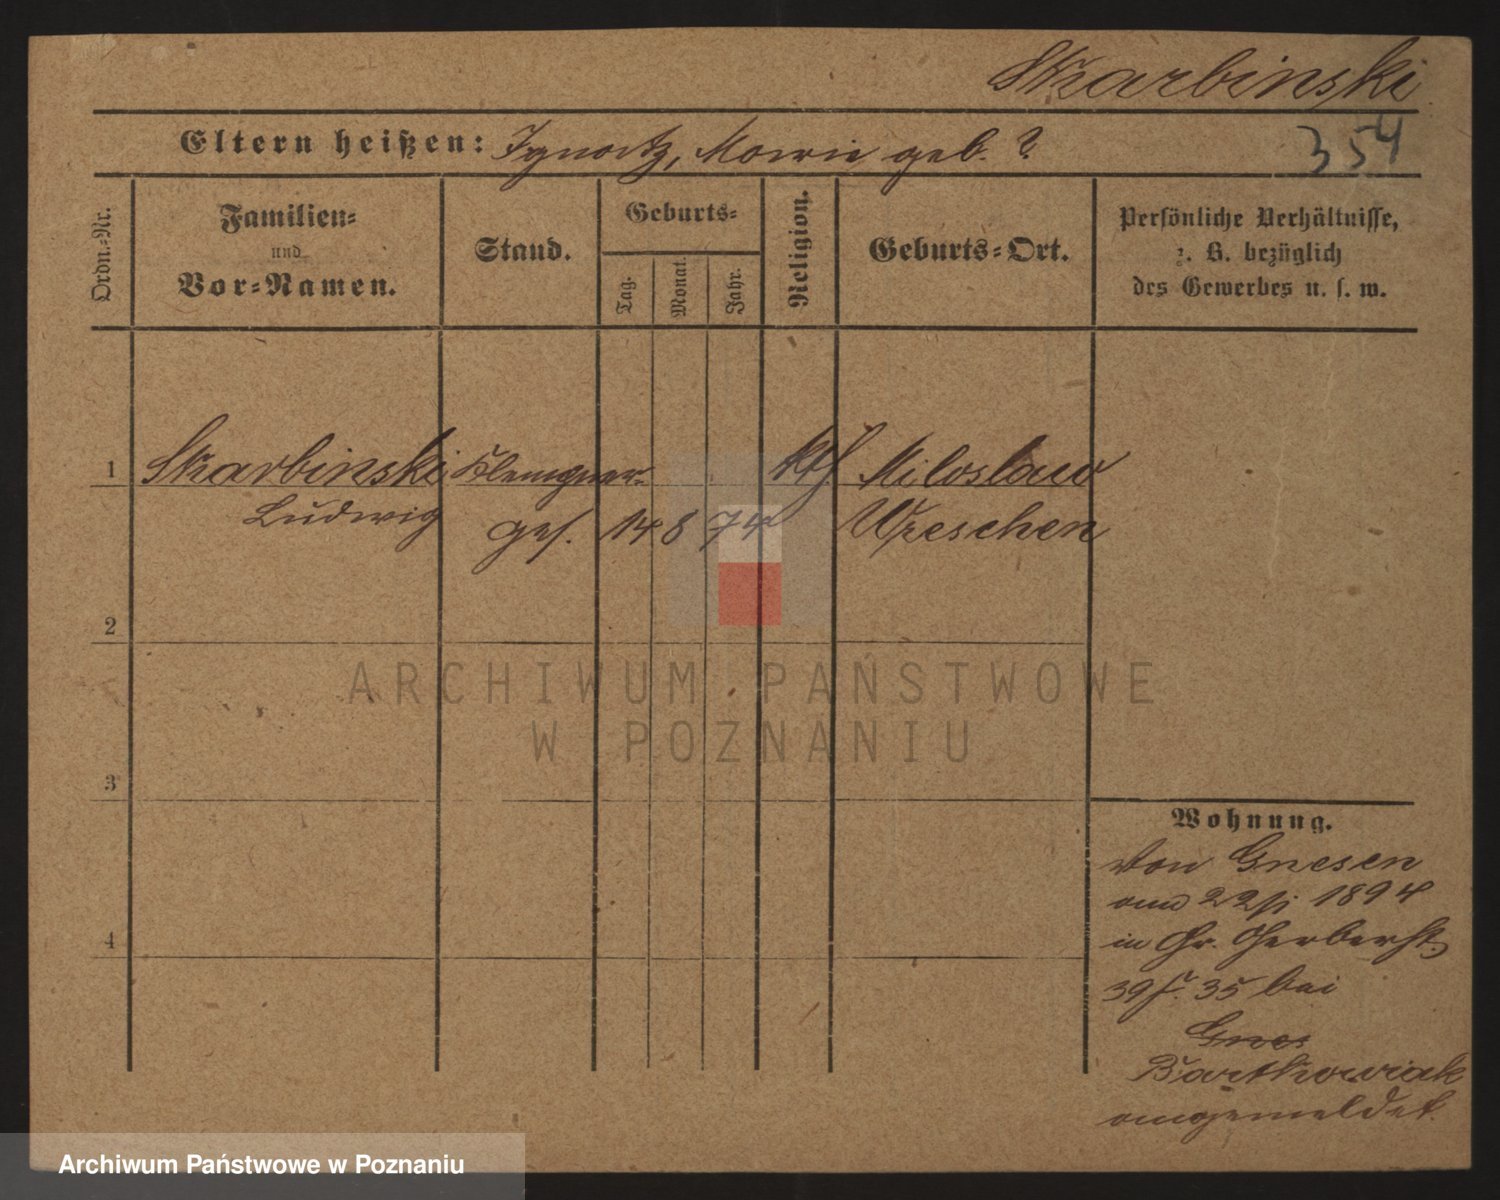 Skarbinski
Eltern heißen: Ignatz, Marie geb. ?
354
Ordn.-Nr.
Familien-
und
Vor-Namen.
Stand.
Geburts-
Tag.
Monat.
Jahr.
Religion.
Geburts-Ort.
Persönliche Verhältnisse,
z. B. bezüglich
des Gewerbes u. s. w.
1 Skarbinski Klempner kth Miloslaw
Ludwig ges. 14 8 74 Wreschen
2
3
4
ARCHIWUM PAŃSTWOWE
W POZNANIU
Wohnung.
Von Gnesen
am 1894
in Gr. Gerberst.
39 f. 35 bei
Gnes
Bartkowiak
angemeldet.
Archiwum Państwowe w Poznaniu